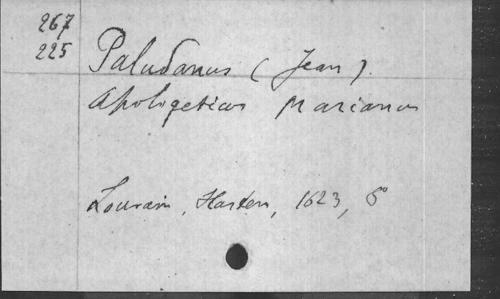 267
225
Paludanus (Jean).
Apologeticus Marianus
Louvain, Hasten, 1623, 8°